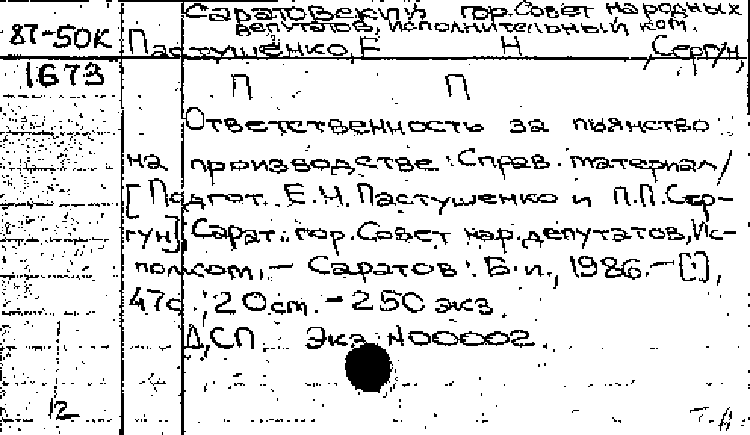 Саратовский гор.Совет народных
депутатов, исполнительный ком.
87-50К Пастушенко, Е Н , Сергун,
1673 П П
Ответственность за пьянство
на производстве: Справ. материал/
[Подгот. Е.Н. Пастушенко и П.П. Сер-
гун]; Сарат. гор. Совет нар. депутатов, Ис-
полком. - Саратов: Б.и., 1986. - [1],
47с.; 20 см. - 250 экз.
ДСП. Экз. N00002.
12